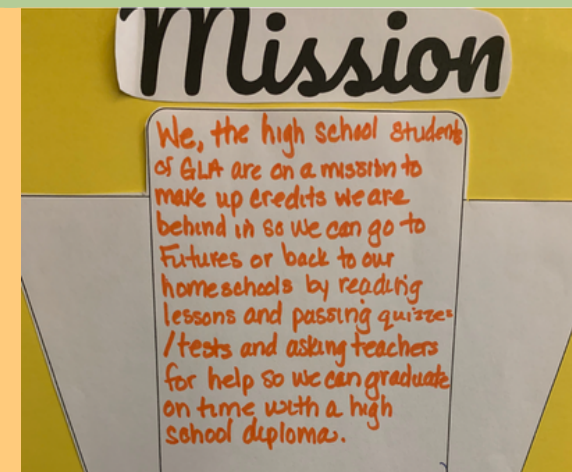 Mission
We, the high school students
of GLA are on a mission to
make up credits we are
behind in so we can go to
Futures or back to our
homeschools by reading
lessons and passing quizzes
/tests and asking teachers
for help so we can graduate
on time with a high
school diploma.